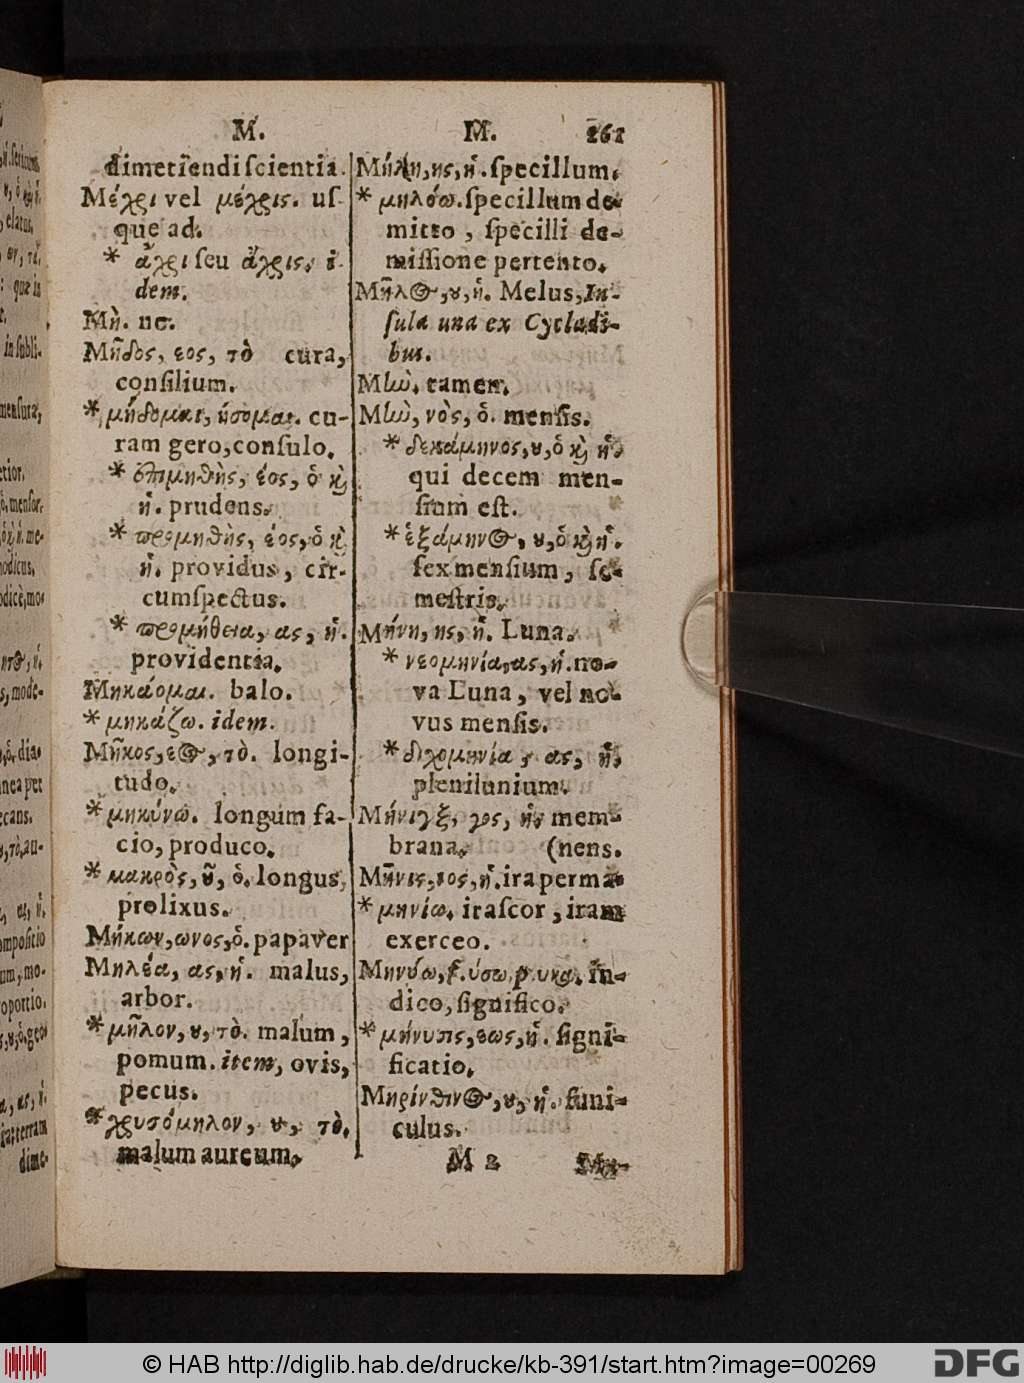 M. M. 261
dimetiendi scientia.
Μέχρι vel μέχρις. us-
que ad.
* ἄχρι seu ἄχρις, i-
dem.
Μὴ. ne.
Μῆδος, εος, τὸ cura,
consilium.
* μήδομαι, ήσομαι. cu-
ram gero, consulo.
* ἐπιμηθὴς, έος, ὁ κ̀
ἡ. prudens.
* προμηθὴς, έος, ὁ κ̀
ἡ. providus, cir-
cumspectus.
* προμήθεια, ας, ἡ.
providentia.
Μηκάομαι. balo.
* μηκάζω. idem.
Μῆκος, εος, τὸ. longi-
tudo.
* μηκύνω. longum fa-
cio, produco.
* μακρὸς, ȣ͂, ὁ. longus,
prolixus.
Μήκων, ωνος, ὁ. papaver
Μηλέα, ας, ἡ. malus,
arbor.
* μῆλον, ȣ, τὸ. malum,
pomum. item, ovis,
pecus.
* χρυσόμηλον, ȣ, τὸ.
malum aureum.
Μήλη, ης, ἡ. specillum.
* μηλόω. specillum de-
mitto, specilli de-
missione pertento.
Μῆλος, ȣ, ἡ. Melus, In-
sula una ex Cycladi-
bus.
Μὴν. tamen.
Μὴν, νὸς, ὁ. mensis.
* δεκάμηνος, ȣ, ὁ κ̀ ἡ.
qui decem men-
sium est.
* ἑξάμηνος, ȣ, ὁ κ̀ ἡ.
sex mensium, se-
mestris.
Μήνη, ης, ἡ. Luna.
* νεομηνία, ας, ἡ. no-
va Luna, vel no-
vus mensis.
* διχομηνία, ας, ἡ.
plenilunium.
Μήνιγξ, γος, ἡ. mem-
brana. (nens.
Μῆνις, ιος, ἡ. ira perma-
* μηνίω. irascor, iram
exerceo.
Μηνύω, f. ύσω, p. υκα. in-
dico, significo.
* μήνυσις, εως, ἡ. signi-
ficatio.
Μηρίνθινος, ȣ, ἡ. funi-
culus.
M 2
© HAB http://diglib.hab.de/drucke/kb-391/start.htm?image=00269
DFG